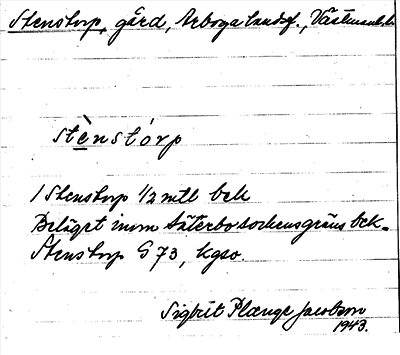 Stenstorp, gård, Arboga landsf., Västmanl. l.
stè̲nstórp
1 Stenstorp 1/2 mtl bek
Beläget inom Säterbo sockensgräns bek.
Stenstorp G 73, kgso.
Sigbrit Plænge Jacobson
1943.